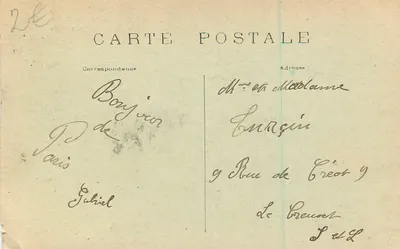 2€
CARTE POSTALE
Correspondance
Adresse
Bonjour
de
Paris
Gabriel
Mme et Madame
Turgin
9 Rue de Créot 9
Le Creusot
S et L